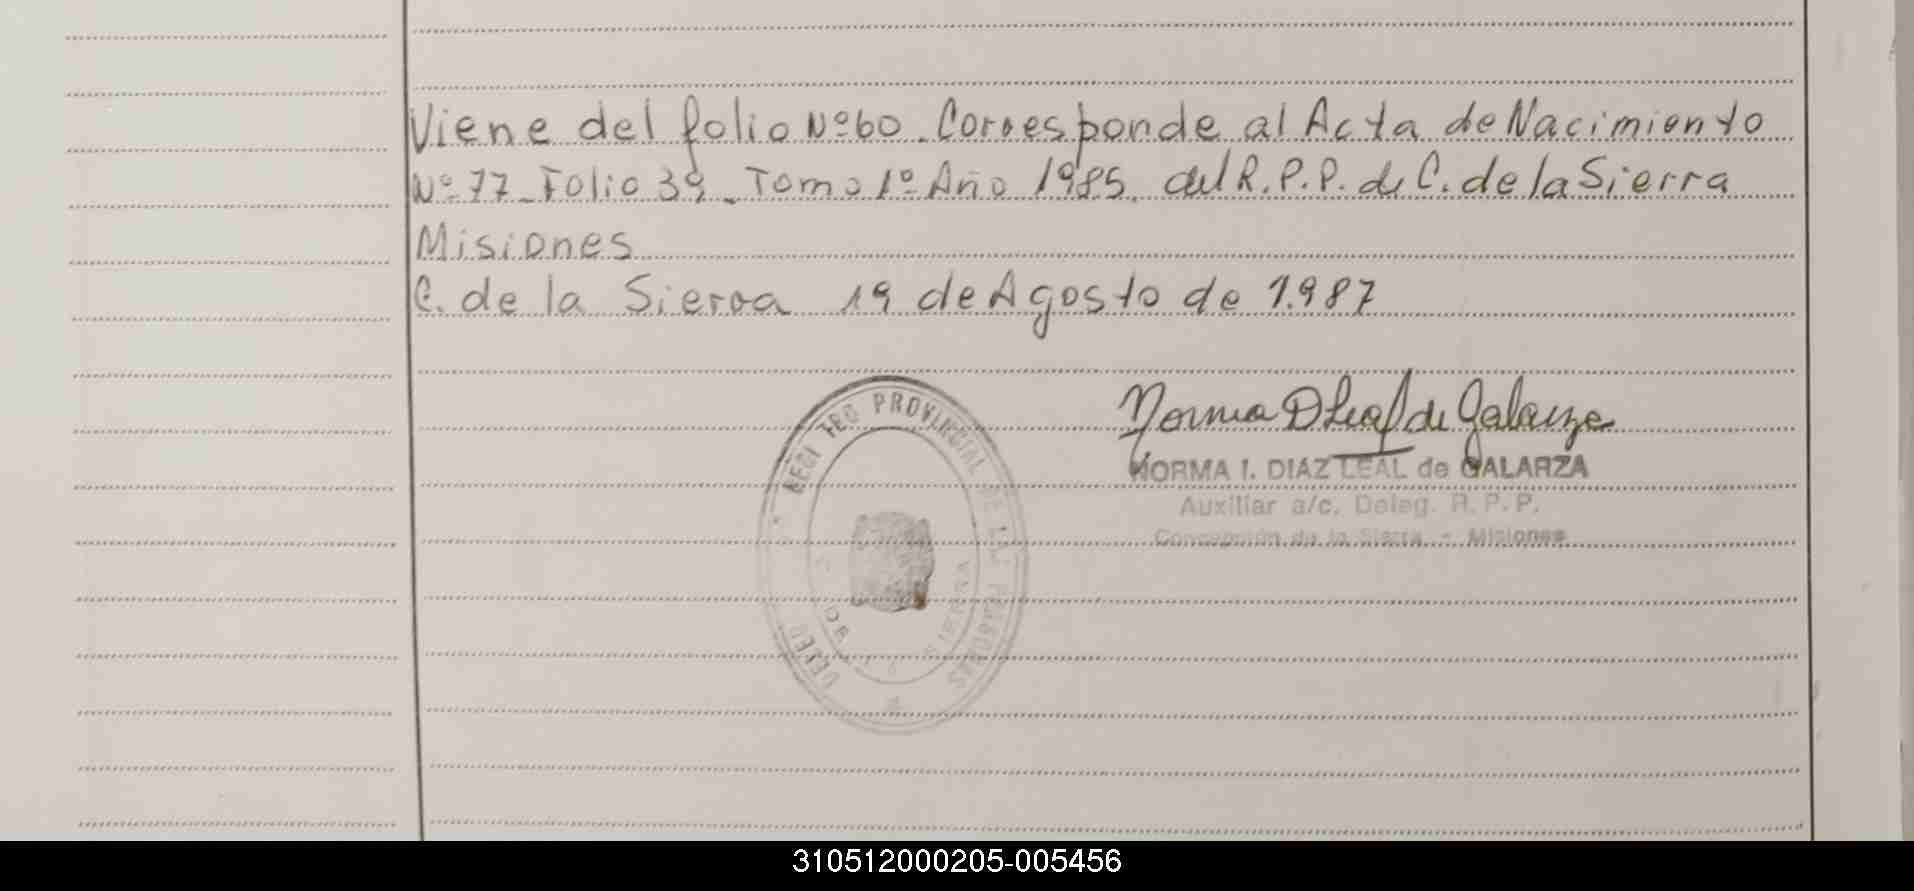 Viene del folio Nº 60. Corresponde al Acta de Nacimiento
Nº 77_ Folio 39_ Tomo 1º Año 1985. del R.P.P. de C. de la Sierra
Misiones
C. de la Sierra 19 de Agosto de 1.987
Norma D Leal de Galarza
NORMA I. DIAZ LEAL de GALARZA
Auxiliar a/c. Deleg. R.P.P.
Concepción de la Sierra - Misiones
PROVINCIAL DE LAS PERSONAS
SIERRA
310512000205-005456